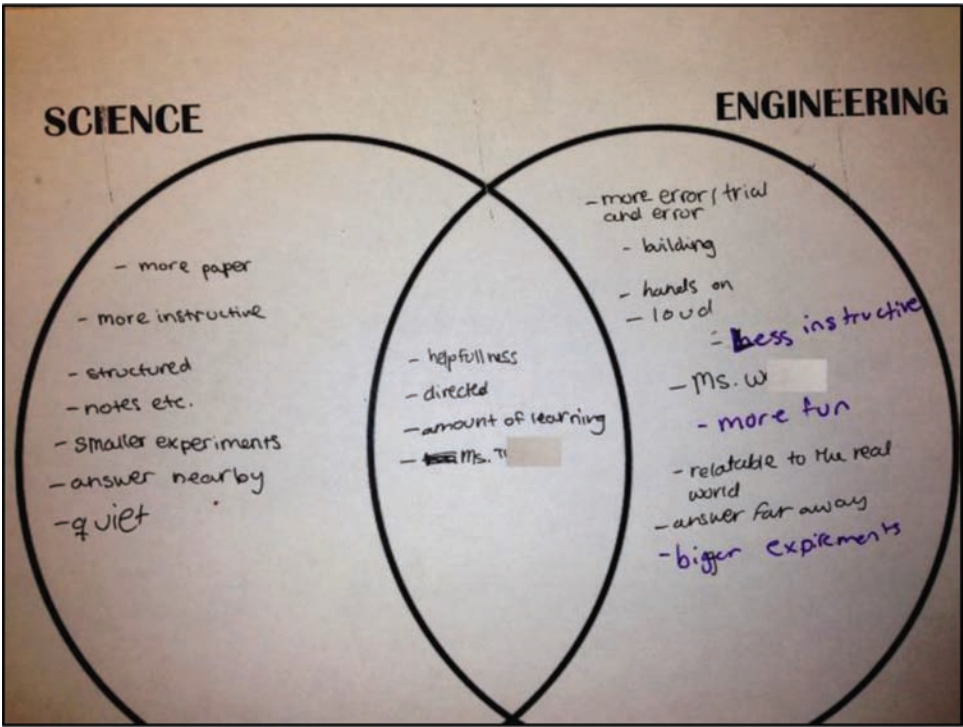 SCIENCE
ENGINEERING
- more paper
- more instructive
- structured
- notes etc.
- smaller experiments
- answer nearby
- quiet
- helpfullness
- directed
- amount of learning
- Ms.
- more error / trial
and error
- building
- hands on
- loud
- Less instructive
- Ms. W
- more fun
- relatable to the real
world
- answer far away
- bigger expirements